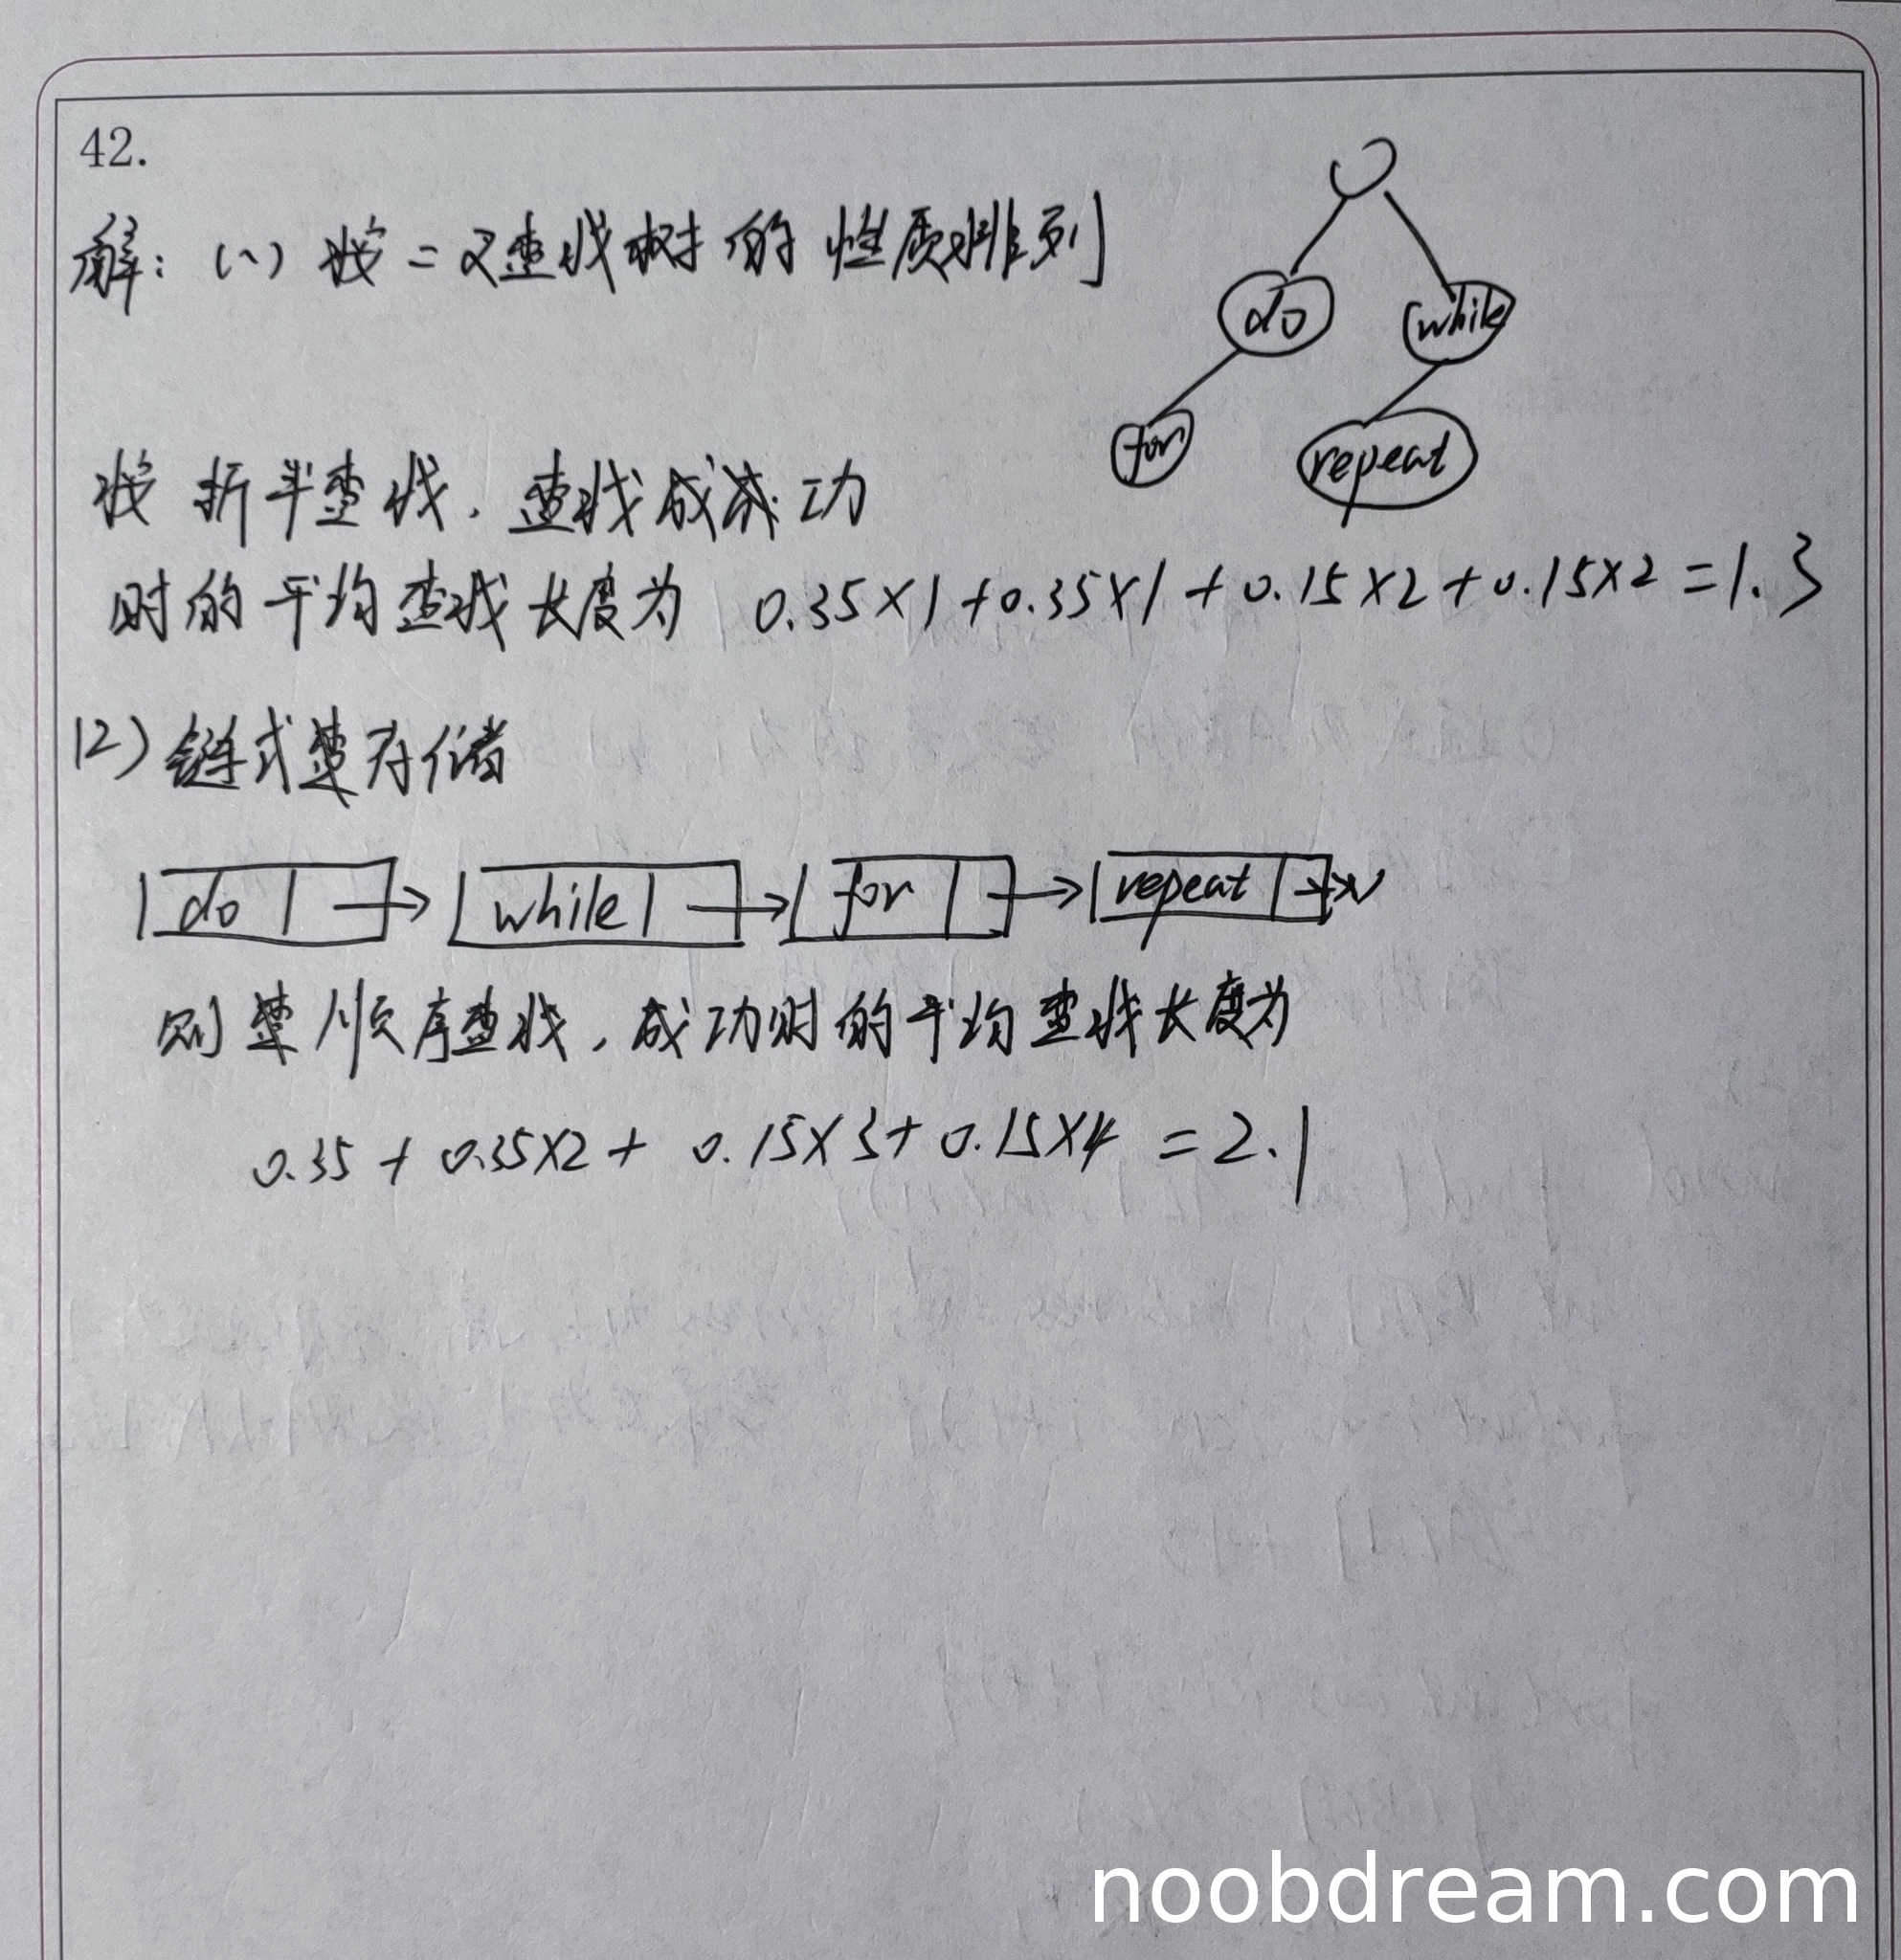 42.
解：(1) 按二叉查找树的性质排列
do
while
for
repeat
按折半查找，查找成功
时的平均查找长度为 0.35×1+0.35×1+0.15×2+0.15×2=1.3
(2) 链式存储
do while for repeat
则 顺序查找，成功时的平均查找长度为
0.35+0.35×2+0.15×3+0.15×4=2.1
noobdream.com